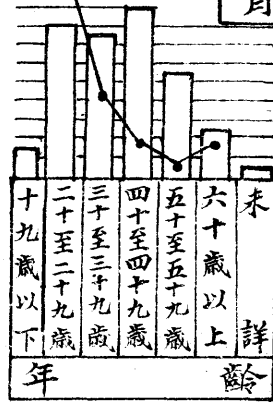 十九歲以下
二十至二十九歲
三十至三十九歲
四十至四十九歲
五十至五十九歲
六十歲以上
未詳
年齡